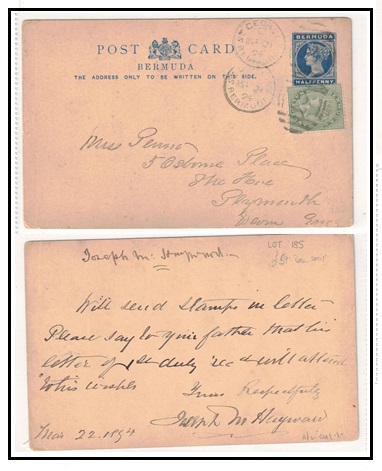 POST CARD
BERMUDA
THE ADDRESS ONLY TO BE WRITTEN ON THIS SIDE.
BERMUDA
HALFPENNY
ST GEORGES
BERMUDA
Miss Penno
5 Osborne Place
The Hoe
Plymouth
Devon Eng
LOT 185
Joseph M. Hayward
Will send stamps in letter
Please say to your father that his
letter of 1st duly rec & will attend
to his wishes
Yours Respectfully
Joseph M Hayward
Mar 22. 1894